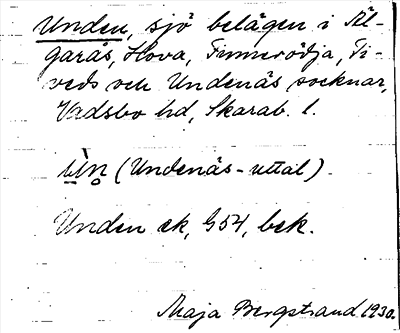 Unden, sjö belägen i Äl-
garås, Hova, Finnerödja, Ti-
veds och Undenäs socknar,
Vadsbo hd, Skarab. l.
(Undenäs-uttal).
Unden ek, G54, bek.
Maja Bergstrand 1930.